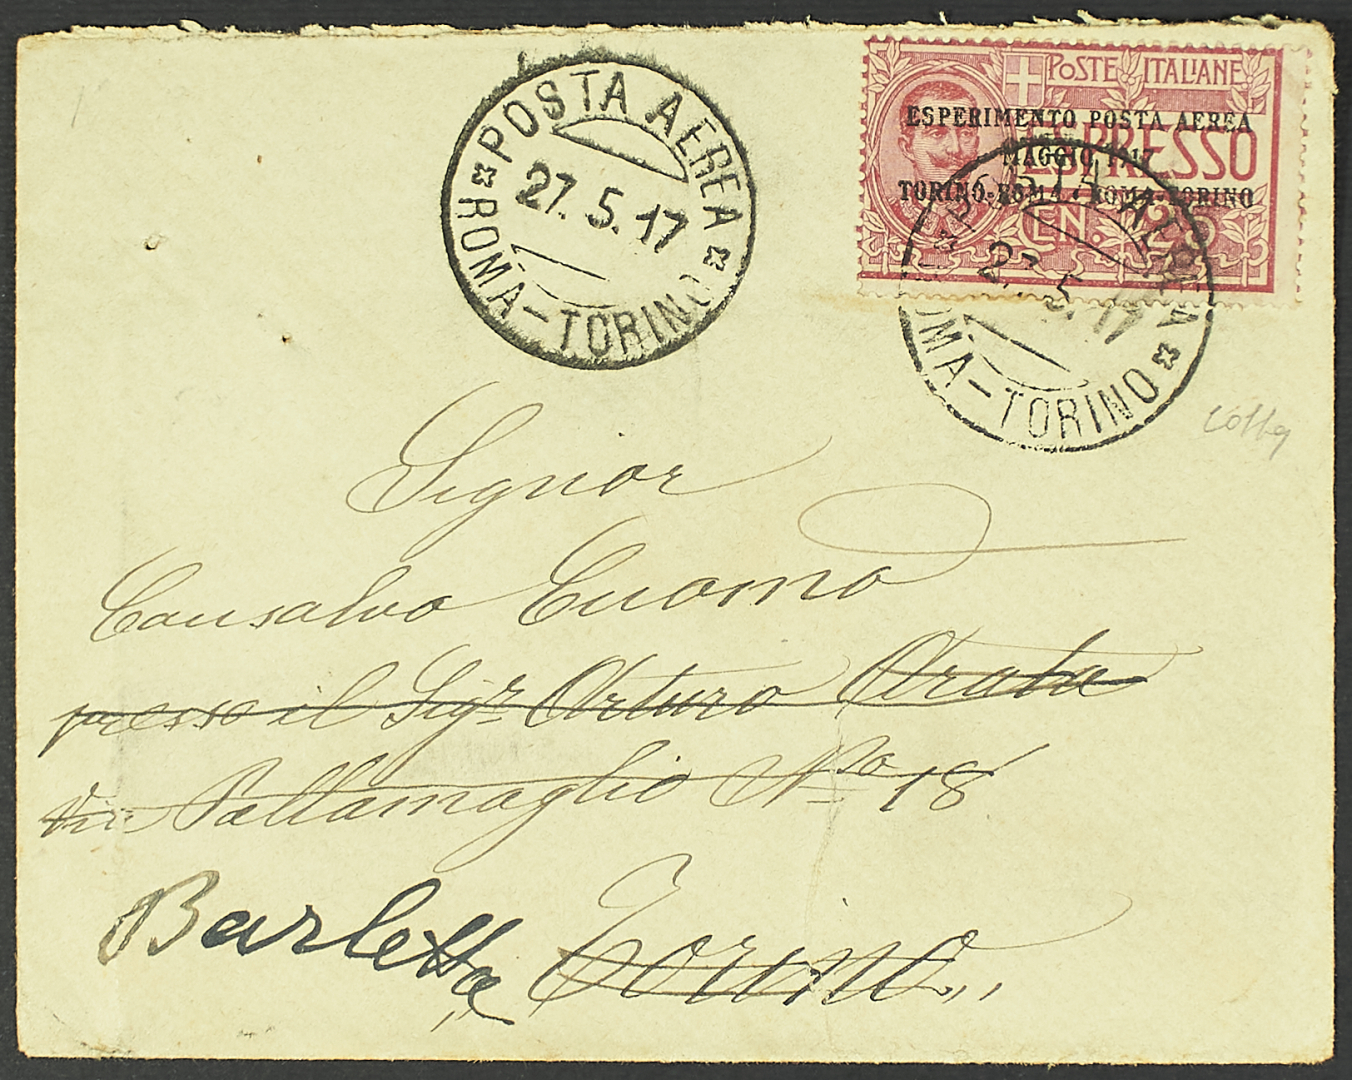 POSTA AEREA
27.5.17
ROMA-TORINO
POSTE ITALIANE
ESPRESSO
CEN. 25
ESPERIMENTO POSTA AEREA
MAGGIO 1917
TORINO-ROMA • ROMA-TORINO
POSTA AEREA
27.5.17
ROMA-TORINO
Signor
Consalvo Cuomo
presso il Sigr Arturo Arata
Via Pallamaglio No 18
Barletta Torino